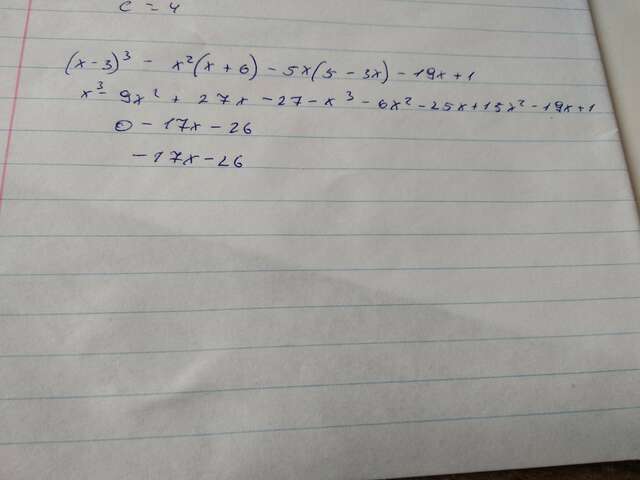 c = 4
(x-3)³ - x²(x+6) - 5x(5-3x) - 19x+1
x³- 9x² + 27x -27-x³ - 6x² -25x+15x² -19x+1
0 - 17x - 26
-17x - 26